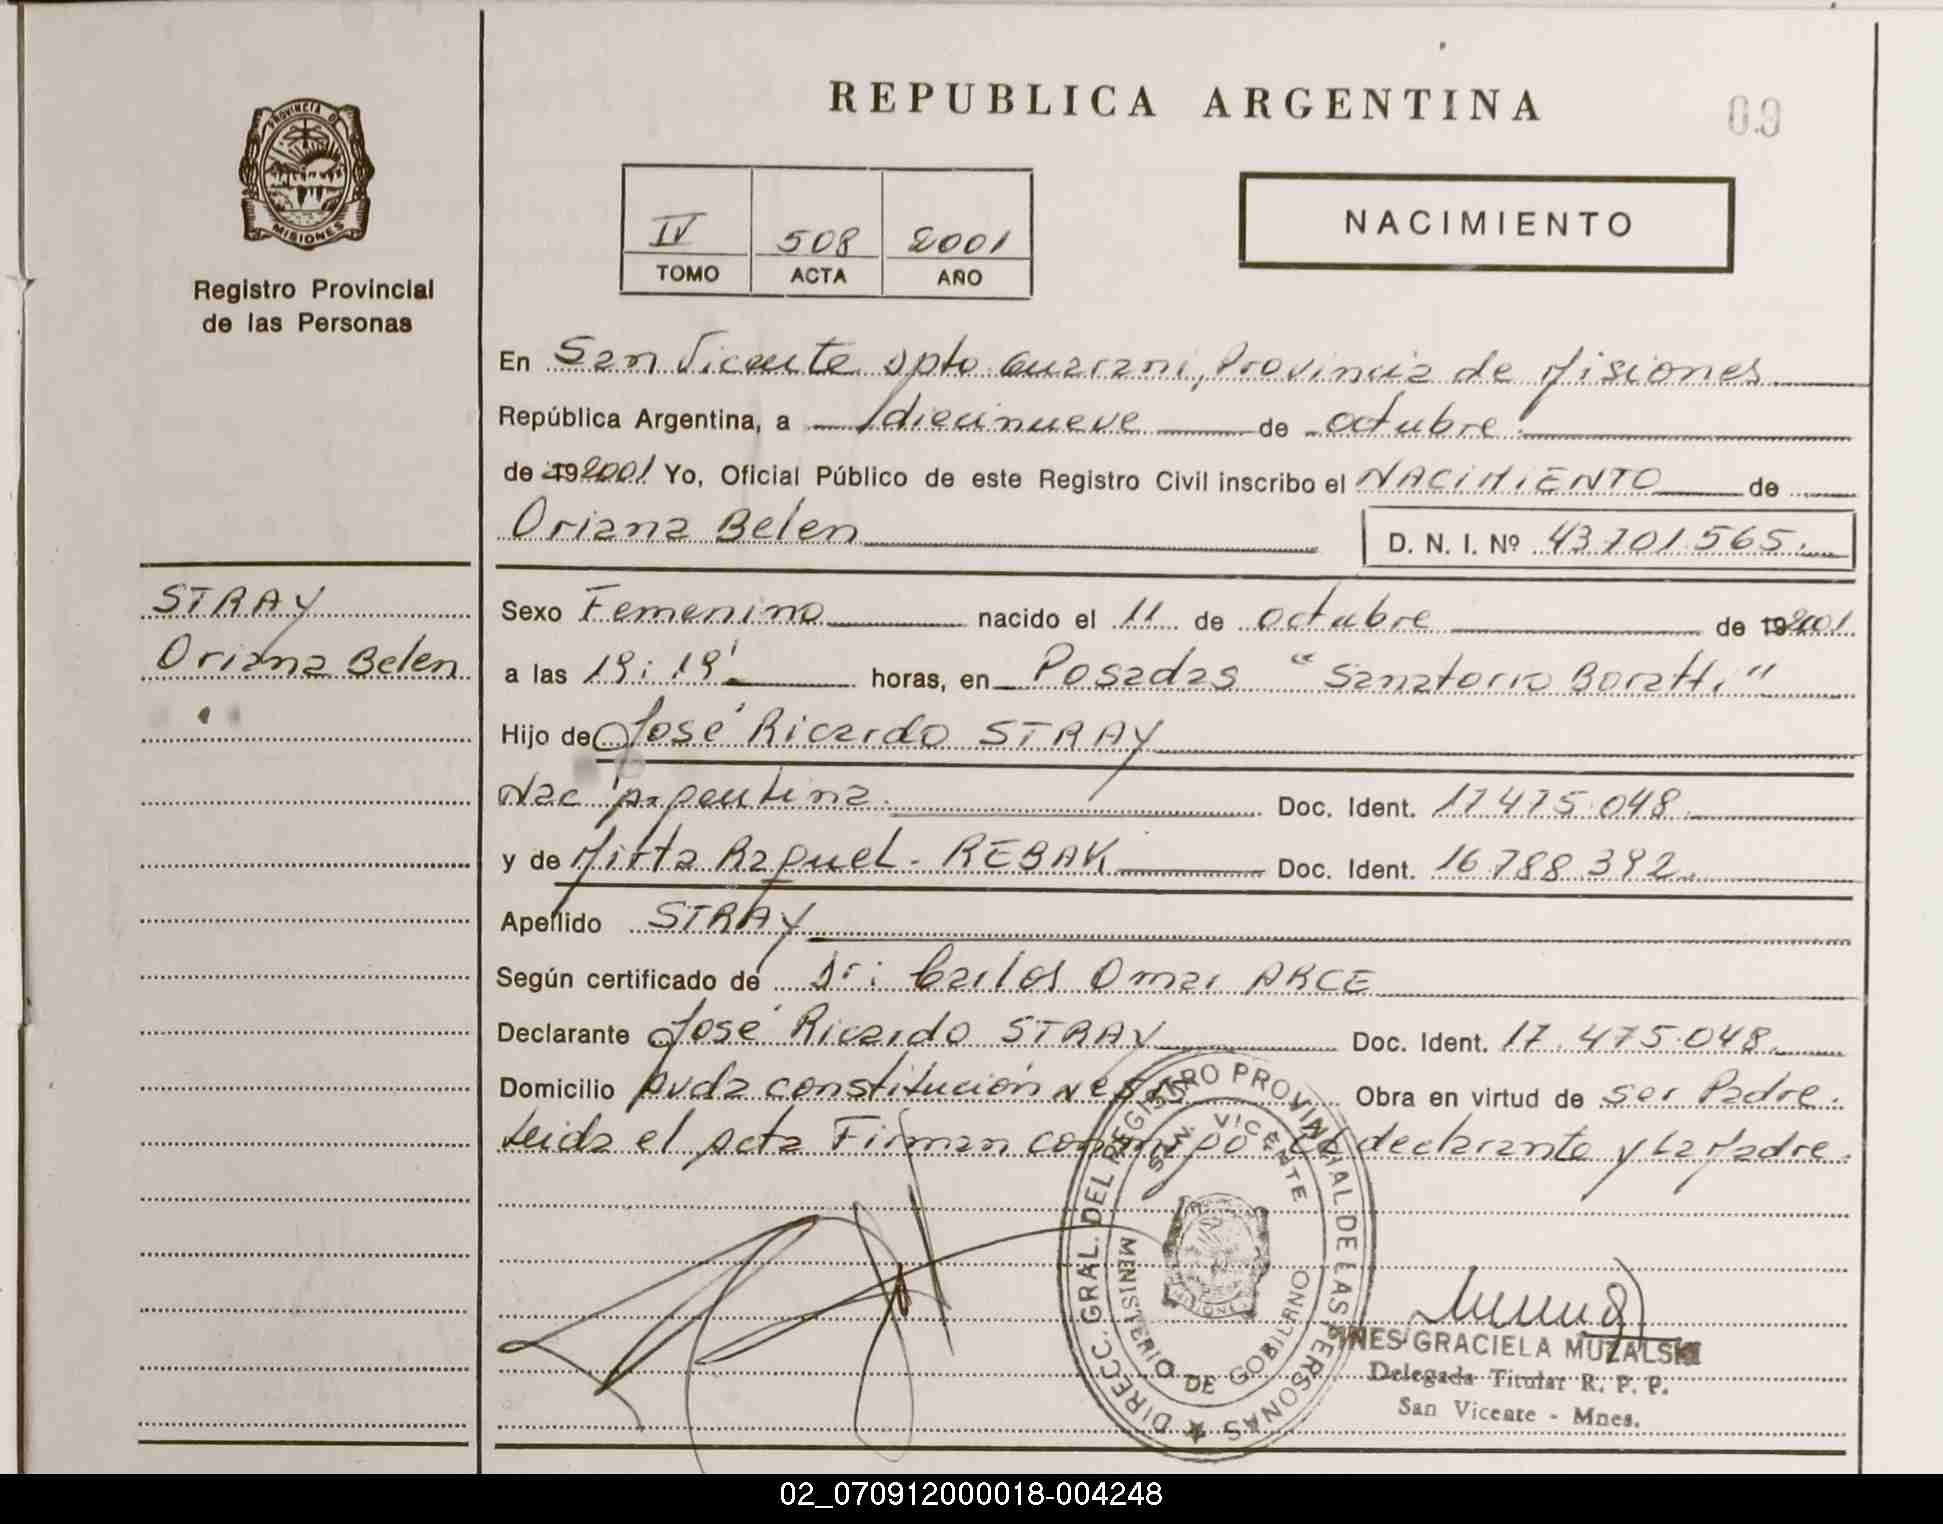 REPUBLICA ARGENTINA
09
PROVINCIA DE
MISIONES
Registro Provincial
de las Personas
IV 508 2001
TOMO ACTA AÑO
NACIMIENTO
En San Vicente Dpto Guarani, Provincia de Misiones
República Argentina, a diecinueve de octubre
de 19 2001 Yo, Oficial Público de este Registro Civil inscribo el NACIMIENTO de
Oriana Belen D. N. I. Nº 43.701.565.
STRAY
Oriana Belen
Sexo Femenino nacido el 11 de octubre de 19 2001
a las 19:19' horas, en Posadas "Sanatorio Boratti"
Hijo de José Ricardo STRAY
Nac Argentina. Doc. Ident. 17.475.048.
y de Mirta Raquel. REBAK Doc. Ident. 16.788.392.
Apellido STRAY
Según certificado de Dr: Carlos Omar ARCE
Declarante José Ricardo STRAY Doc. Ident. 17.475.048.
Domicilio Avda constitución Obra en virtud de ser Padre.
Leida el acta Firman conmigo el declarante y La Madre.
DIRECC. GRAL. DEL REGISTRO PROVINCIAL DE LAS PERSONAS
SAN VICENTE
MINISTERIO DE GOBIERNO
MISIONES
INES GRACIELA MUZALSKI
Delegada Titular R. P. P.
San Vicente - Mnes.
02_070912000018-004248